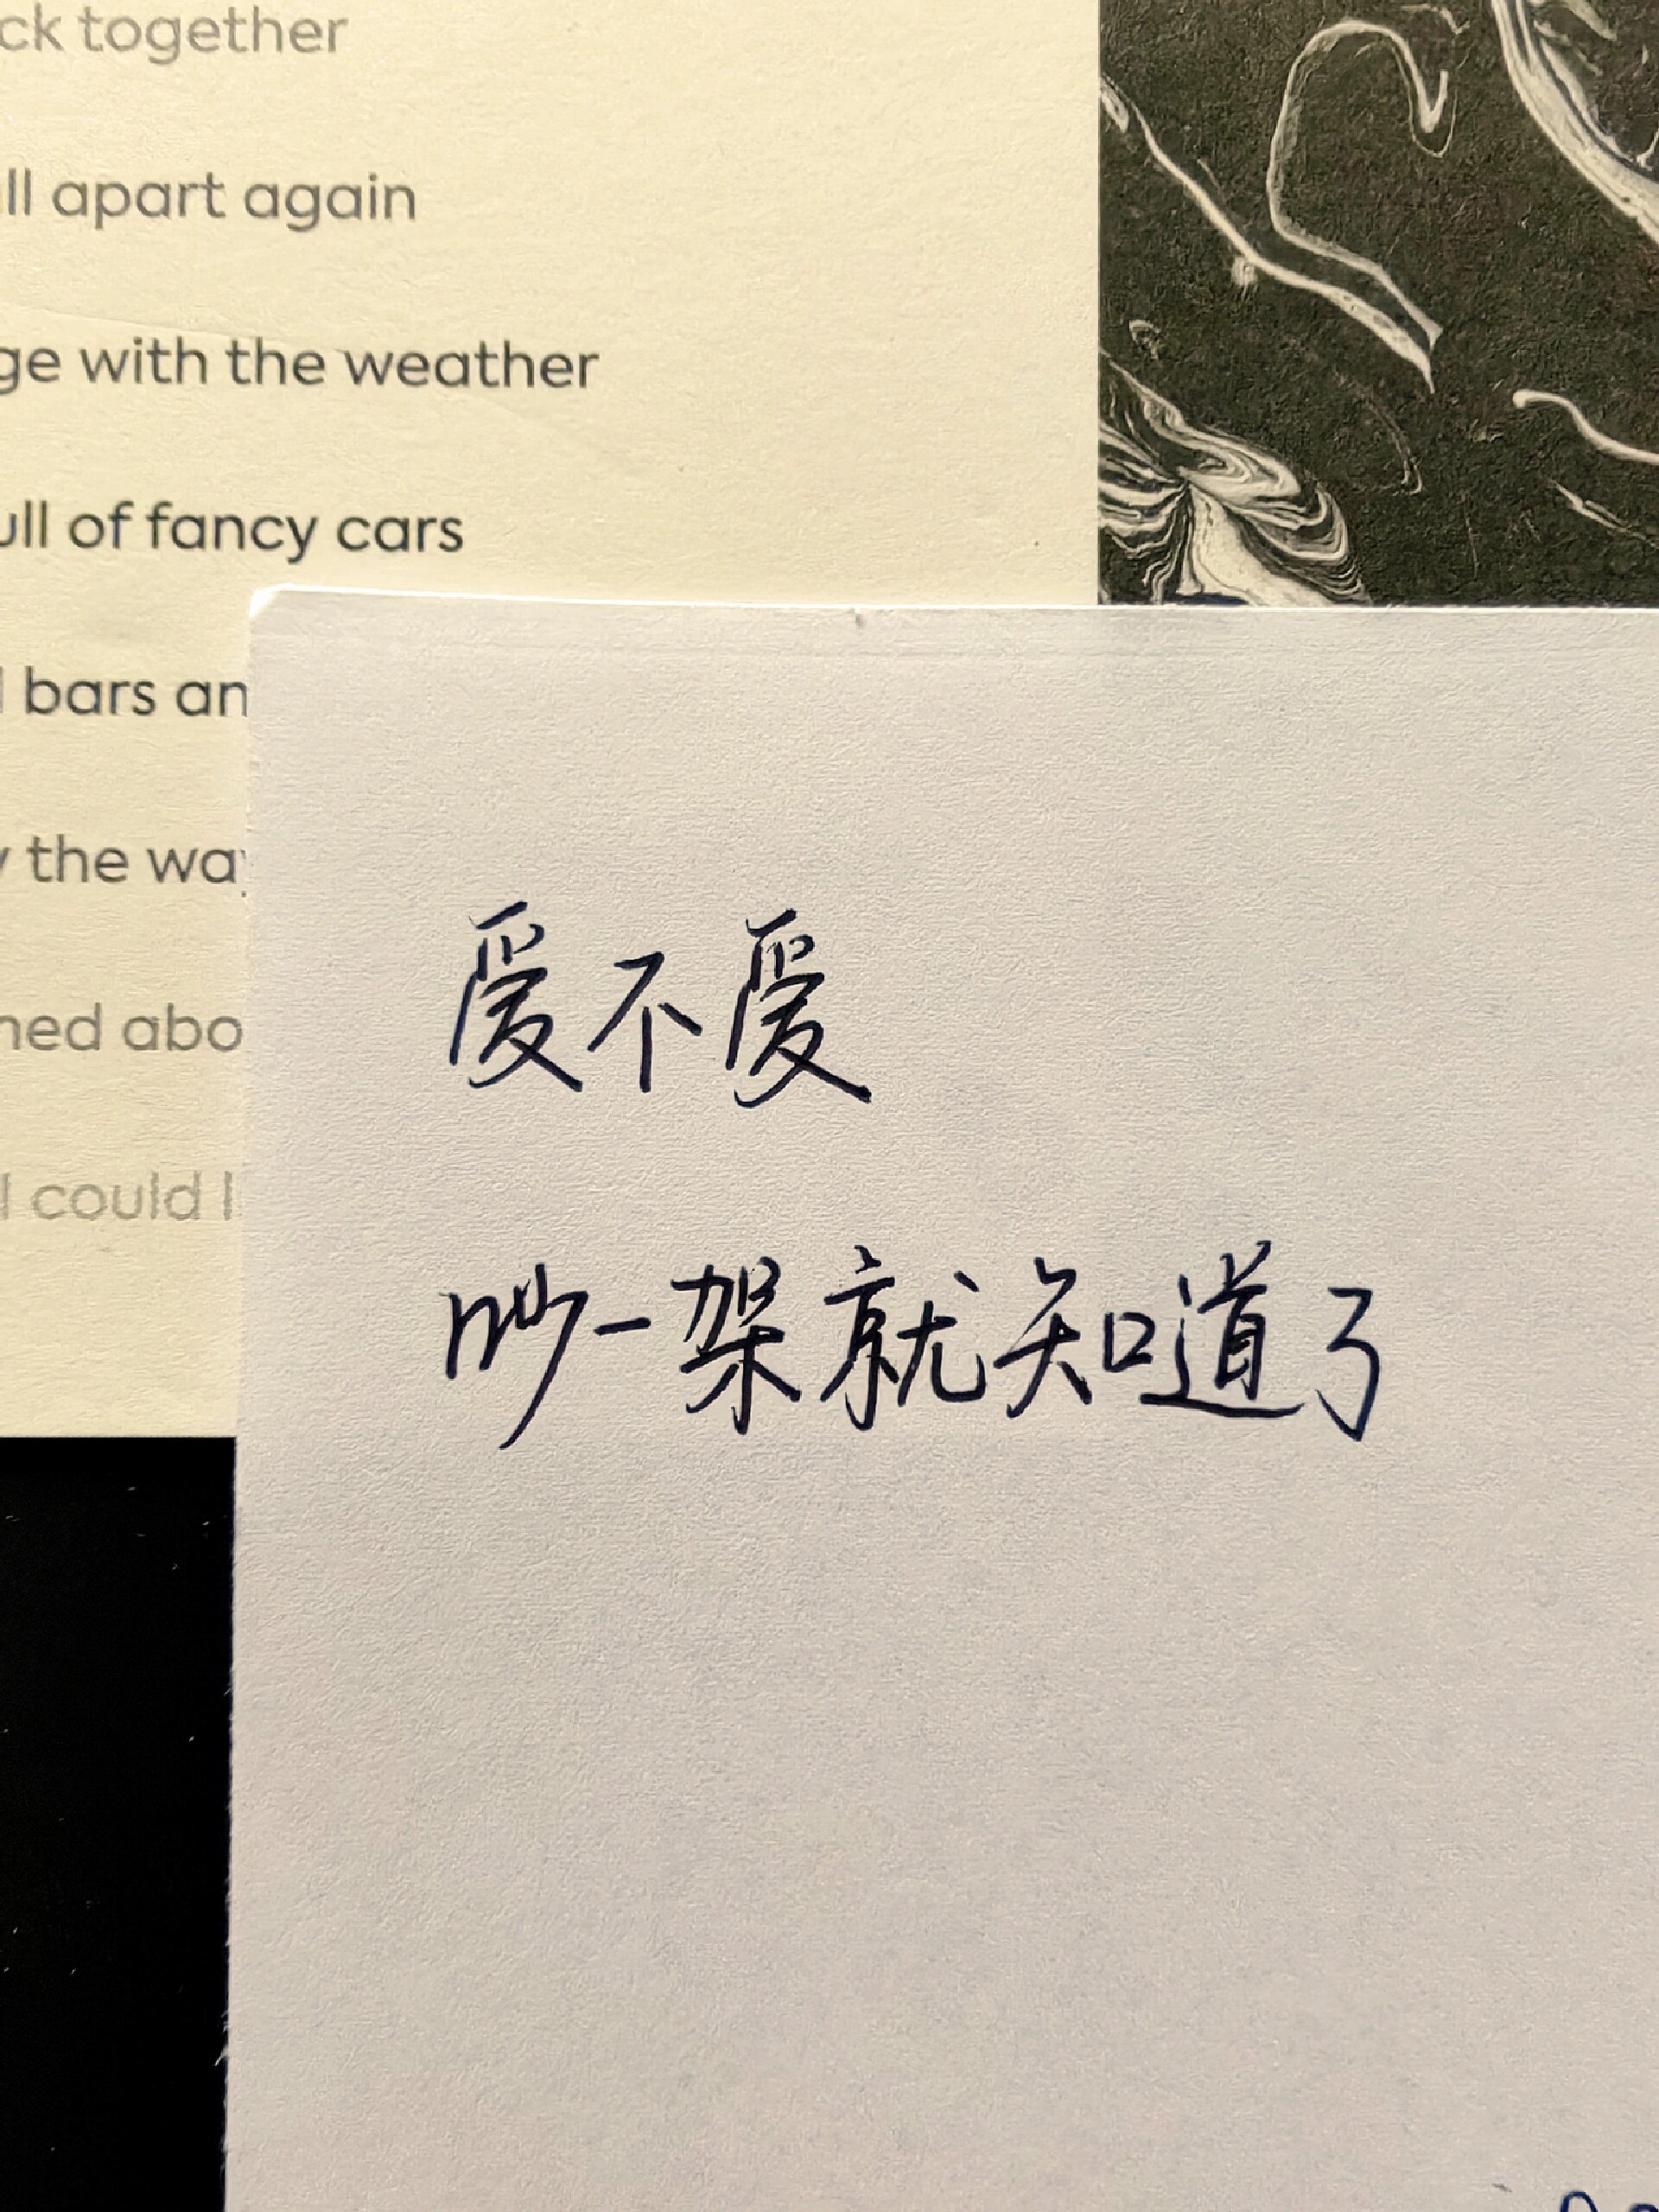 ck together
ll apart again
ge with the weather
ull of fancy cars
bars an
the way
ned abo
I could l
爱不爱
吵一架就知道了